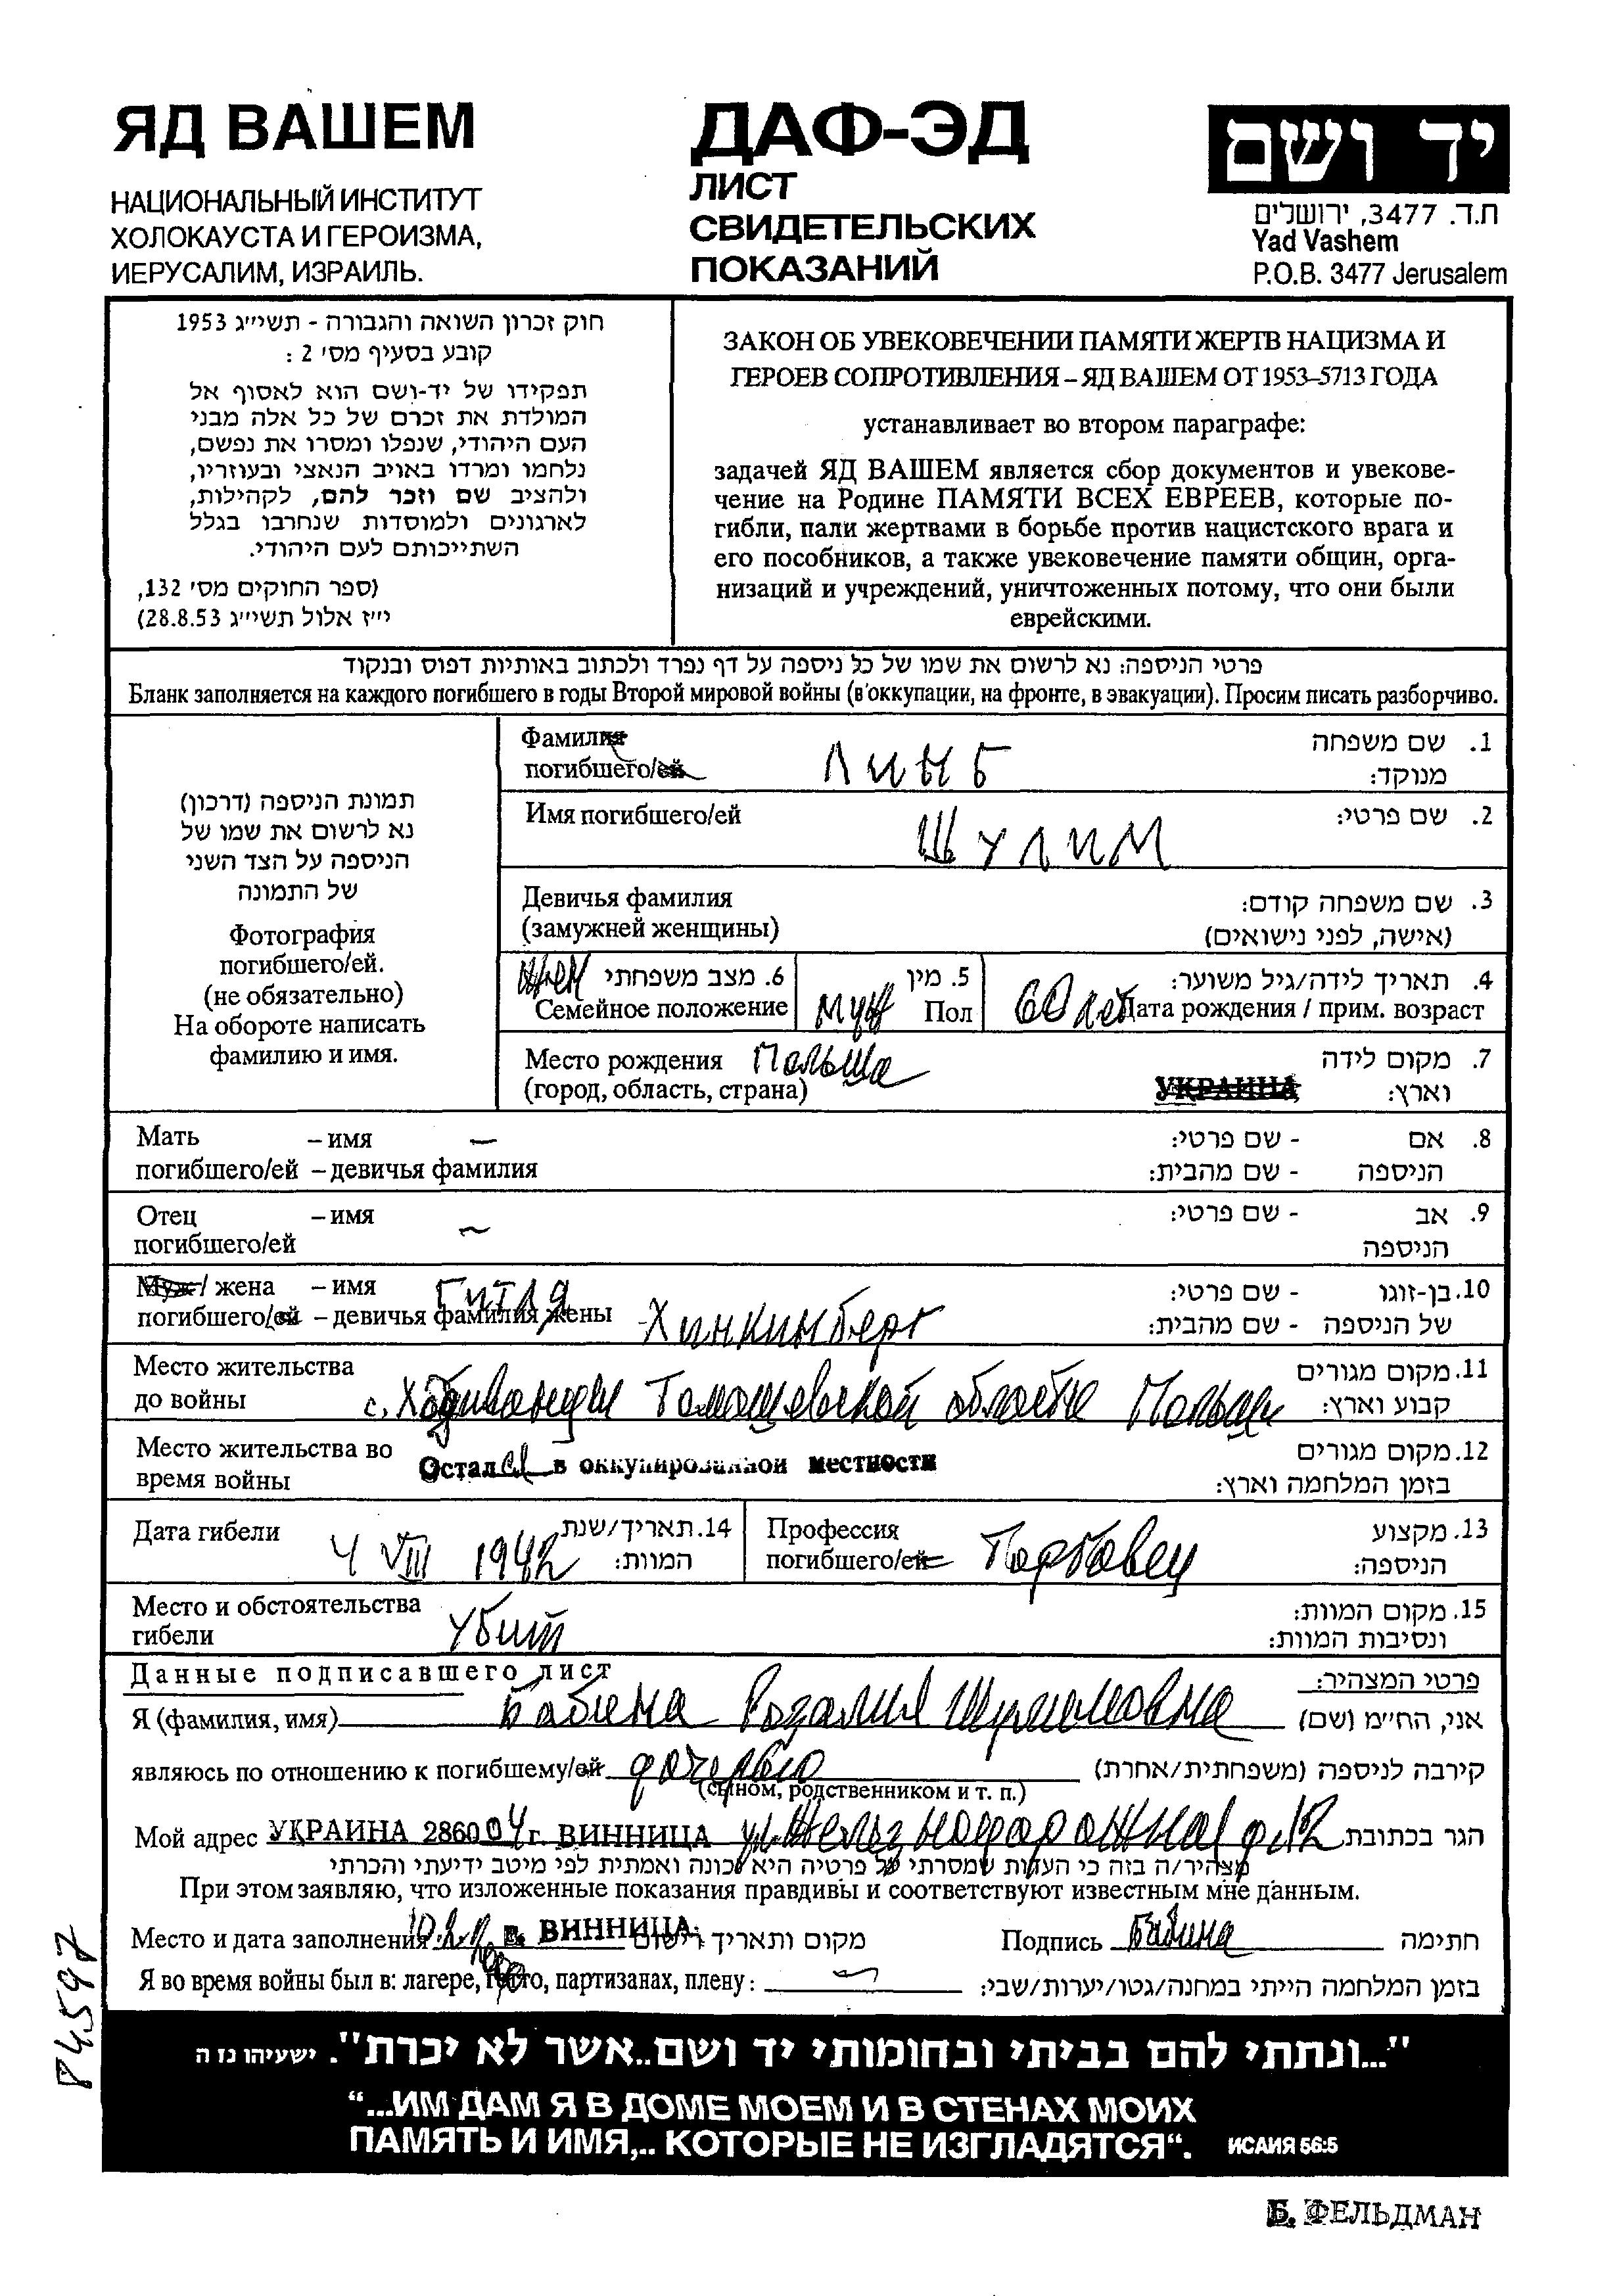 ЯД ВАШЕМ
НАЦИОНАЛЬНЫЙ ИНСТИТУТ
ХОЛОКАУСТА И ГЕРОИЗМА,
ИЕРУСАЛИМ, ИЗРАИЛЬ.
ДАФ-ЭД
ЛИСТ
СВИДЕТЕЛЬСКИХ
ПОКАЗАНИЙ
יד ושם
ת.ד. 3477, ירושלים
Yad Vashem
P.O.B. 3477 Jerusalem
חוק זכרון השואה והגבורה - תשי״ג 1953
קובע בסעיף מס׳ 2 :
תפקידו של יד-ושם הוא לאסוף אל
המולדת את זכרם של כל אלה מבני
העם היהודי, שנפלו ומסרו את נפשם,
נלחמו ומרדו באויב הנאצי ובעוזריו,
ולהציב שם וזכר להם, לקהילות,
לארגונים ולמוסדות שנחרבו בגלל
השתייכותם לעם היהודי.
(ספר החוקים מס׳ 132,
י״ז אלול תשי״ג 28.8.53)
ЗАКОН ОБ УВЕКОВЕЧЕНИИ ПАМЯТИ ЖЕРТВ НАЦИЗМА И
ГЕРОЕВ СОПРОТИВЛЕНИЯ – ЯД ВАШЕМ ОТ 1953–5713 ГОДА
устанавливает во втором параграфе:
задачей ЯД ВАШЕМ является сбор документов и увекове-
чение на Родине ПАМЯТИ ВСЕХ ЕВРЕЕВ, которые по-
гибли, пали жертвами в борьбе против нацистского врага и
его пособников, а также увековечение памяти общин, орга-
низаций и учреждений, уничтоженных потому, что они были
еврейскими.
פרטי הניספה: נא לרשום את שמו של כל ניספה על דף נפרד ולכתוב באותיות דפוס ובנקוד
Бланк заполняется на каждого погибшего в годы Второй мировой войны (в оккупации, на фронте, в эвакуации). Просим писать разборчиво.
תמונת הניספה (דרכון)
נא לרשום את שמו של
הניספה על הצד השני
של התמונה
Фотография
погибшего/ей.
(не обязательно)
На обороте написать
фамилию и имя.
Фамилия
погибшего/ей
ЛИНБ
1. שם משפחה
מנוקד:
Имя погибшего/ей
ШУЛИМ
2. שם פרטי:
Девичья фамилия
(замужней женщины)
3. שם משפחה קודם:
(אישה, לפני נישואים)
жен 6. מצב משפחתי
Семейное положение
5. מין
муж Пол
4. תאריך לידה/גיל משוער:
60 лет Дата рождения / прим. возраст
Место рождения Польша
(город, область, страна)
УКРАИНА
7. מקום לידה
וארץ:
Мать – имя —
погибшего/ей – девичья фамилия
8. אם - שם פרטי:
הניספה - שם מהבית:
Отец – имя
погибшего/ей —
9. אב - שם פרטי:
הניספה
Муж / жена – имя Гитля
погибшего/ей – девичья фамилия жены Хинкинберг
10. בן-זוגו - שם פרטי:
של הניספה - שם מהבית:
Место жительства
до войны с. Томошевской области Польши
11. מקום מגורים
קבוע וארץ:
Место жительства во
время войны Остался в оккупированной местности
12. מקום מגורים
בזמן המלחמה וארץ:
Дата гибели 4 VIII 1942
14. תאריך/שנת
המוות:
Профессия
погибшего/ей Торговец
13. מקצוע
הניספה:
Место и обстоятельства
гибели Убит
15. מקום המוות:
ונסיבות המוות:
Данные подписавшего лист
פרטי המצהיר:
Я (фамилия, имя) Бабина Розалия Шулимовна אני, הח״מ (שם)
являюсь по отношению к погибшему/ей дочерью קירבה לניספה (משפחתית/אחרת)
(сыном, родственником и т. п.)
Мой адрес УКРАИНА 286004 г. ВИННИЦА ул. Железнодорожная д. 12 הגר בכתובת
מצהיר/ה בזה כי העדות שמסרתי על פרטיה היא נכונה ואמתית לפי מיטב ידיעתי והכרתי
При этом заявляю, что изложенные показания правдивы и соответствуют известным мне данным.
Место и дата заполнения г. ВИННИЦА מקום ותאריך רישום
Подпись Бабина חתימה
Я во время войны был в: лагере, гетто, партизанах, плену: בזמן המלחמה הייתי במחנה/גטו/יערות/שבי:
84597
"...ונתתי להם בביתי ובחומותי יד ושם..אשר לא יכרת". ישעיהו נז ה
“...ИМ ДАМ Я В ДОМЕ МОЕМ И В СТЕНАХ МОИХ
ПАМЯТЬ И ИМЯ,.. КОТОРЫЕ НЕ ИЗГЛАДЯТСЯ“. ИСАИЯ 56:5
Б. ФЕЛЬДМАН